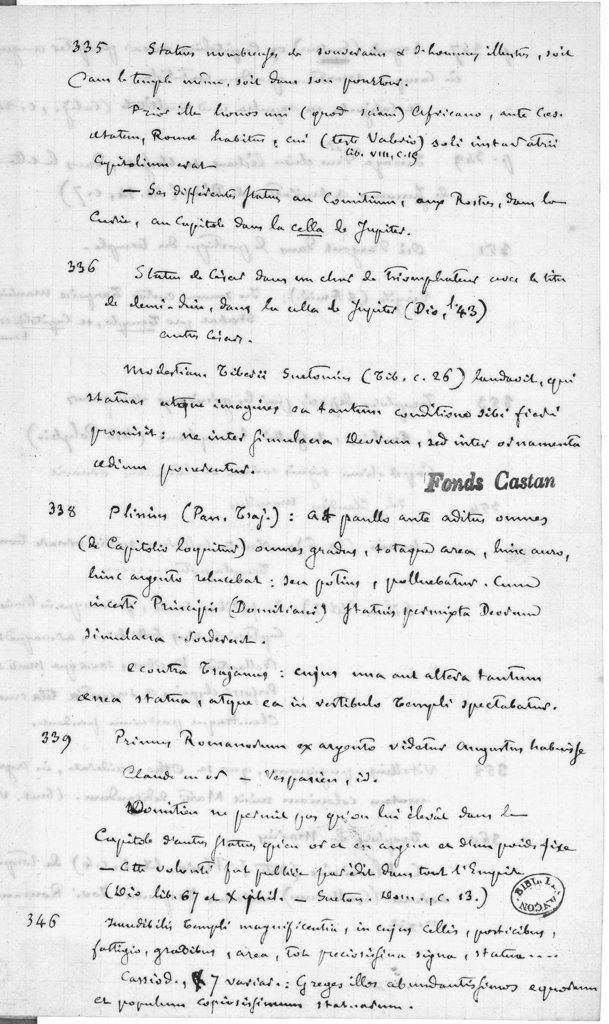 335 Statues nombreuses de souverains & d'hommes illustres, soit
dans le temple même, soit dans son pourtour.
Prior ille honos uni (quod sciam) Africano, ante Caes.
aetatem, Romae habitus, cui (teste Valerio) soli instar atrii
lib. VIII, c. 15
Capitolium erat
— Ses différentes statues au Comitium, aux Rostres, dans la
Curie, au Capitole dans la cella de Jupiter.
336 Statue de César dans un char de triomphateur avec le titre
de demi-dieu, dans la cella de Jupiter (Dio, l. 43)
autres Césars.
Modestiam Tiberii Suetonius (Tib. c. 26) laudavit, qui
statuas atque imagines ea tantum conditione sibi fieri
promisit: ne inter simulacra Deorum, sed inter ornamenta
aedium ponerentur.
Fonds Castan
338 Plinius (Pan. Traj.): paullo ante aditus omnes
(de Capitolio loquitur) omnes gradus, totaque area, hinc auro,
hinc argento relucebat: seu potius, polluebatur. Cum
incesti Principis (Domitiani) statuis permixta Deorum
simulacra sorderent.
econtra Trajanus: cujus una aut altera tantum
aenea statua, atque ea in vestibulo Templi spectabatur.
339 Primus Romanorum ex argento videtur Augustus habuisse
Claude en or — Vespasien, id.
Domitien ne permit pas qu'on lui élevât dans le
Capitole d'autres statues qu'en or et en argent et d'un poids fixe
— Cette volonté fut publiée par édit dans tout l'Empire
(Dio lib. 67 et Xiphil. — Sueton. Dom., c. 13.)
BIBL. BESANÇON
346 Incredibilis Templi magnificentia, in cujus cellis, porticibus,
fastigio, gradibus, area, tot preciosissima signa, statuae....
Cassiod., 7 variar.: Greges illos abundantissimos equorum
et populum copiosissimum statuarum.